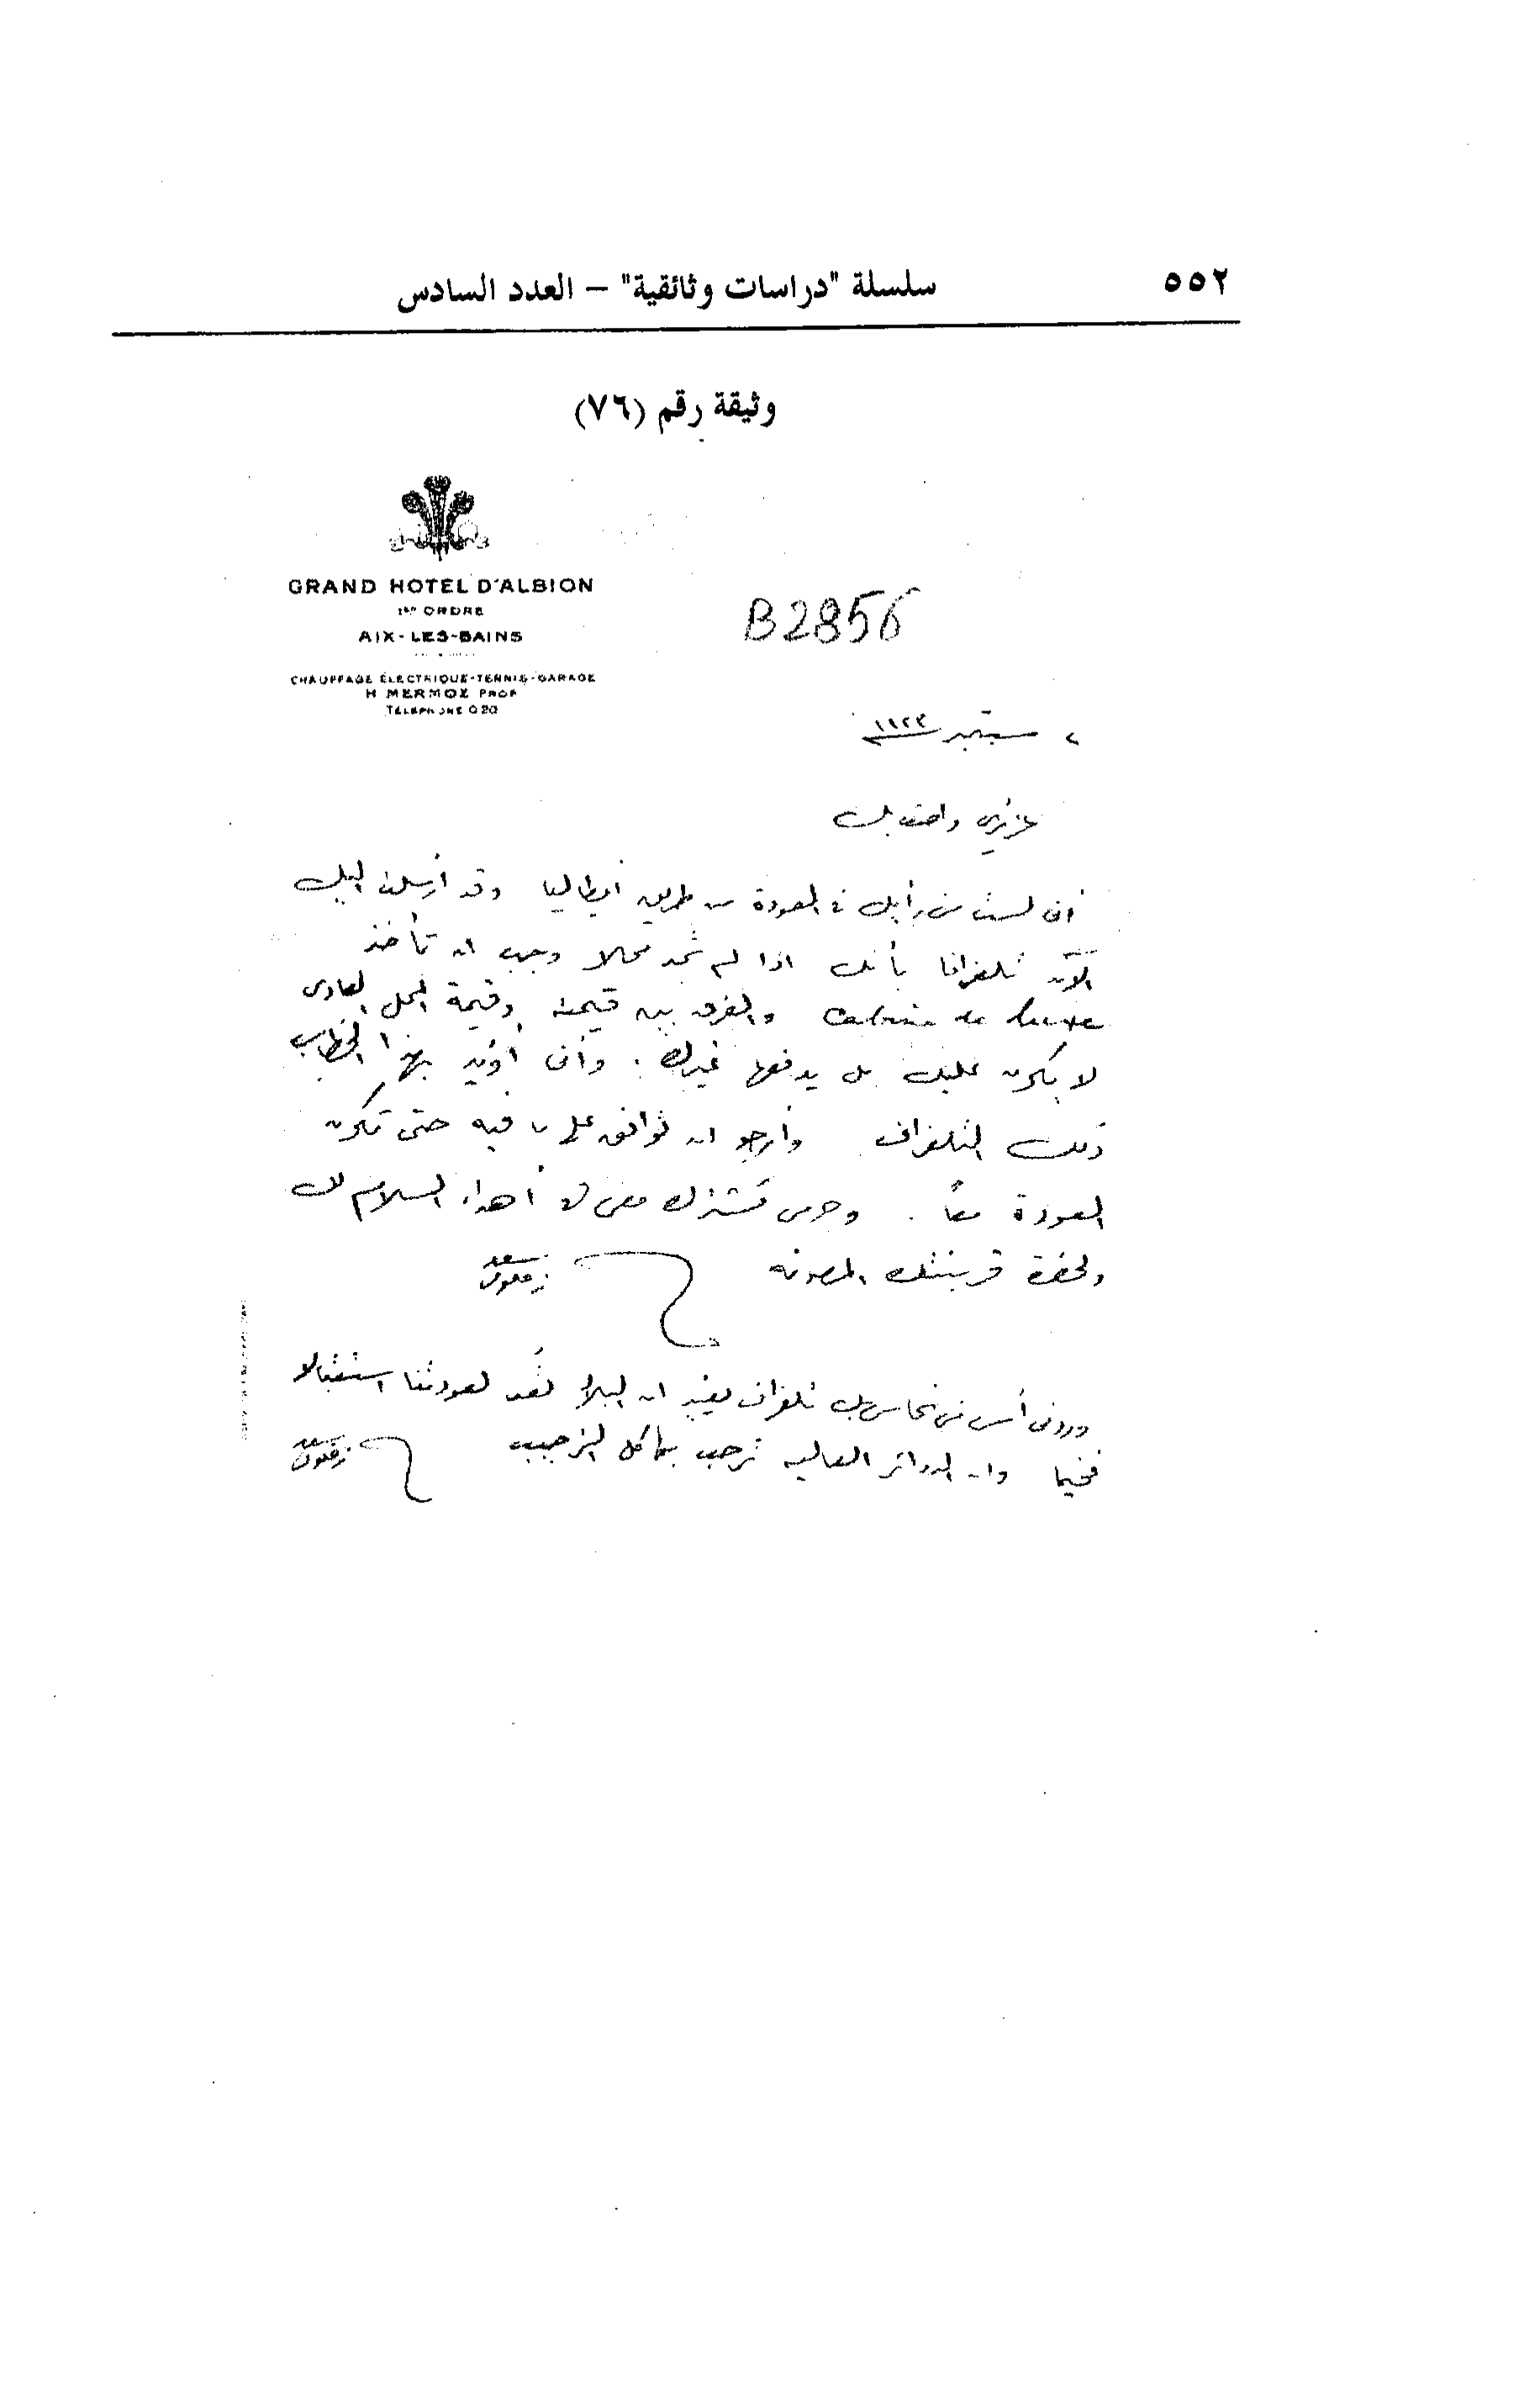 ٥٥٢
سلسلة "دراسات وثائقية" – العدد السادس
وثيقة رقم (٧٦)
GRAND HOTEL D'ALBION
1er ORDRE
AIX-LES-BAINS
CHAUFFAGE ÉLECTRIQUE-TENNIS-GARAGE
H MERMOZ PROP
TÉLÉPHONE 0 20
B2856
٢ سبتمبر ١٩٢٣
عزيزي واصف بك
انى لست من رأيك في العودة من طريق ايطاليا وقد أرسلت اليك
الآن تلغرافا بأنك اذا لم تجد محلا وجب ان تأخذ
Cabine de luxe والفرق بين قيمته وقيمة المحل العادى
لا يكون عليك بل يدفعها غيرك. وأنى أؤيد بهذا الخطاب
ذلك التلغراف وأرجو ان توافق على ما فيه حتى تكون
العودة معاً. وحرمى تشترك معى في أهداء السلام لك
ولحضرة قرينتك المصونه
سعد زغلول
وردنى أمس من نحاس بك تلغراف يفيد ان البلاد تعد لعودتنا استقبالا
فخيما وان الدوائر العاليه ترحب بها كل الترحيب
سعد زغلول